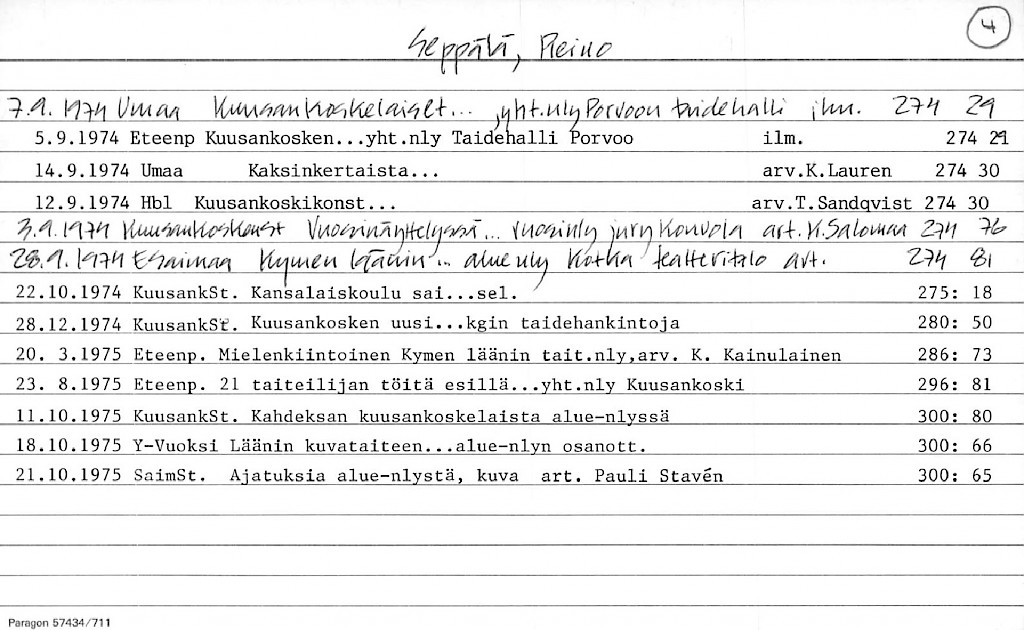 4
Seppälä, Reino
7.9. 1974 Umaa Kuusankoskelaiset... yht.nly Porvoon taidehalli ilm. 274 29
5.9.1974 Eteenp Kuusankosken...yht.nly Taidehalli Porvoo ilm. 274 29
14.9.1974 Umaa Kaksinkertaista... arv.K.Lauren 274 30
12.9.1974 Hbl Kuusankoskikonst... arv.T.Sandqvist 274 30
3.9.1974 Vuosinäyttelyssä... vuosinly jury Kouvola art. K.Saloman 274 76
28.9.1974 ESaimaa Kymen läänin... alue nly Kotka teatteritalo art. 274 81
22.10.1974 KuusankSt. Kansalaiskoulu sai...sel. 275: 18
28.12.1974 KuusankSt. Kuusankosken uusi...kgin taidehankintoja 280: 50
20. 3.1975 Eteenp. Mielenkiintoinen Kymen läänin tait.nly,arv. K. Kainulainen 286: 73
23. 8.1975 Eteenp. 21 taiteilijan töitä esillä...yht.nly Kuusankoski 296: 81
11.10.1975 KuusankSt. Kahdeksan kuusankoskelaista alue-nlyssä 300: 80
18.10.1975 Y-Vuoksi Läänin kuvataiteen...alue-nlyn osanott. 300: 66
21.10.1975 SaimSt. Ajatuksia alue-nlystä, kuva art. Pauli Stavén 300: 65
Paragon 57434/711